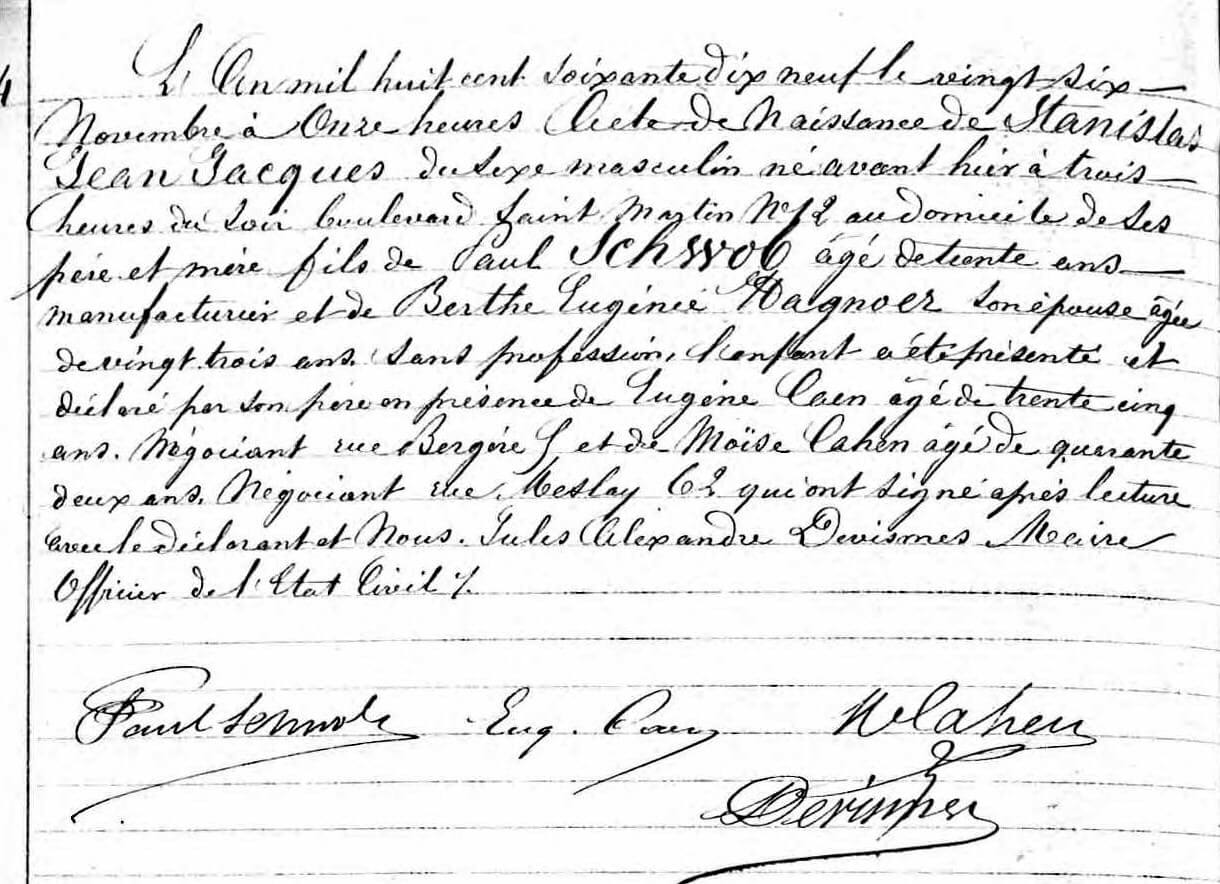 4
L'An mil huit cent soixante dix neuf le vingt six
Novembre à Onze heures Acte de Naissance de Stanislas
Jean Jacques du sexe masculin né avant hier à trois
heures du soir boulevard Saint Martin No 12 au domicile de ses
père et mère fils de Paul Schwob âgé de trente ans
manufacturier et de Berthe Eugénie Hagnoer son épouse âgée
de vingt trois ans. sans profession, L'enfant a été présenté et
déclaré par son père en présence de Eugène Caen âgé de trente cinq
ans. Négociant rue Bergère 5 et de Moïse Cahen âgé de quarante
deux ans. Négociant rue Meslay 62 qui ont signé après lecture
avec le déclarant et Nous. Jules Alexandre Devismes Maire
Officier de l'Etat Civil ./.
Paul Schwob Eug. Caen M Cahen
Devismes